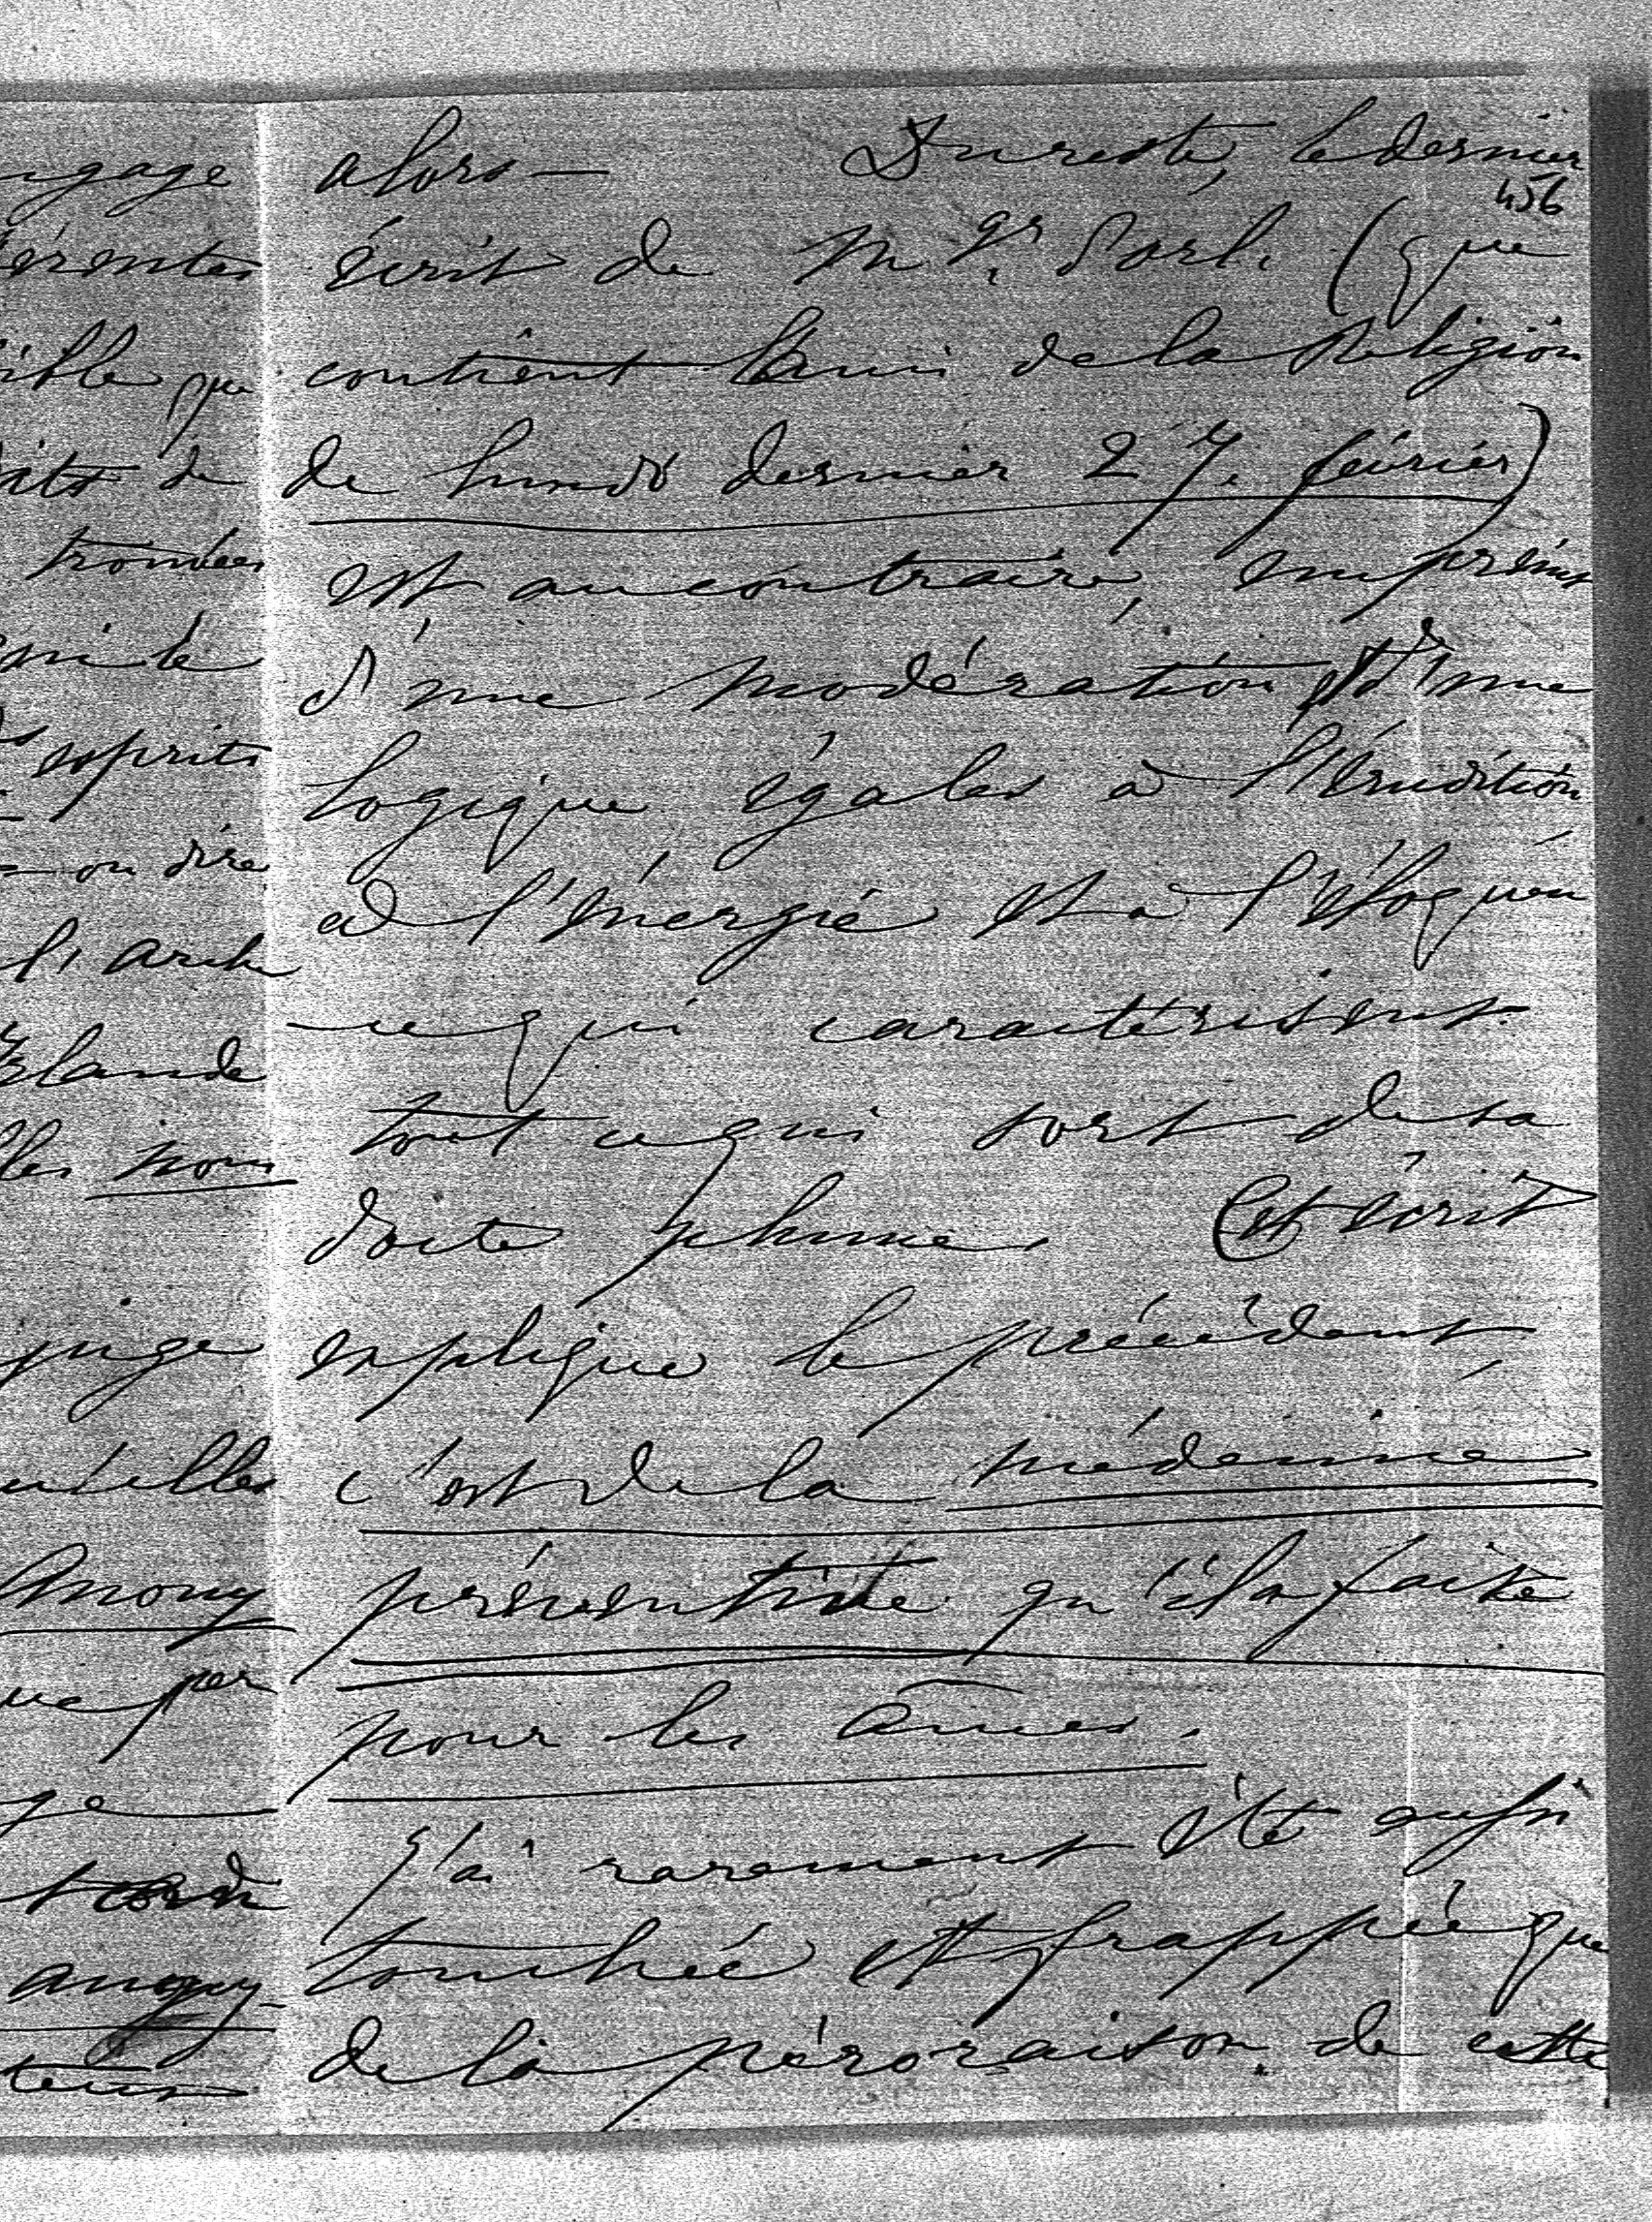 ugage
érentes
ible que
de
trouvées
esprits
ou dire
l'arche
Irlande
les nous
juge
Anony
que par
ge
teurs
alors — Du reste, le dernier
456
écrit de Mgr. d'Orl. (que
contient l'ami de la Religion
de lundi dernier 27. février)
est au contraire, empreint
d'une modération et d'une
logique égales à l'érudition
à l'énergie et à l'éloquen
ce qui caractérisent
tout ce qui sort de sa
docte plume. Cet écrit
explique le précédent,
c'est de la médecine
préventive qu'il a faite
pour les âmes.
J'ai rarement été aussi
touchée et frappée que
de la péroraison de cette